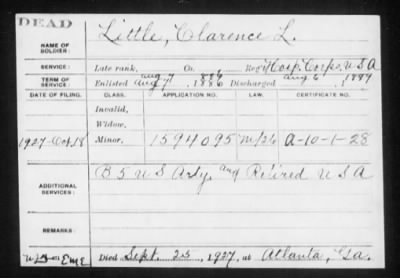 DEAD
NAME OF SOLDIER: Little, Clarence L.
SERVICE: Late rank, Co. Reg't Hosp. Corps, U S A
TERM OF SERVICE: Enlisted Aug 7, 1886 Discharged Aug 6, 1887
DATE OF FILING. CLASS. APPLICATION NO. LAW. CERTIFICATE NO.
Invalid,
Widow,
1927-Oct.18 Minor, 1594095 A-10-1-28
ADDITIONAL SERVICES: B 5 U S Arty. and Retired U S A
REMARKS:
Died Sept. 25, 1927, at Atlanta, Ga.